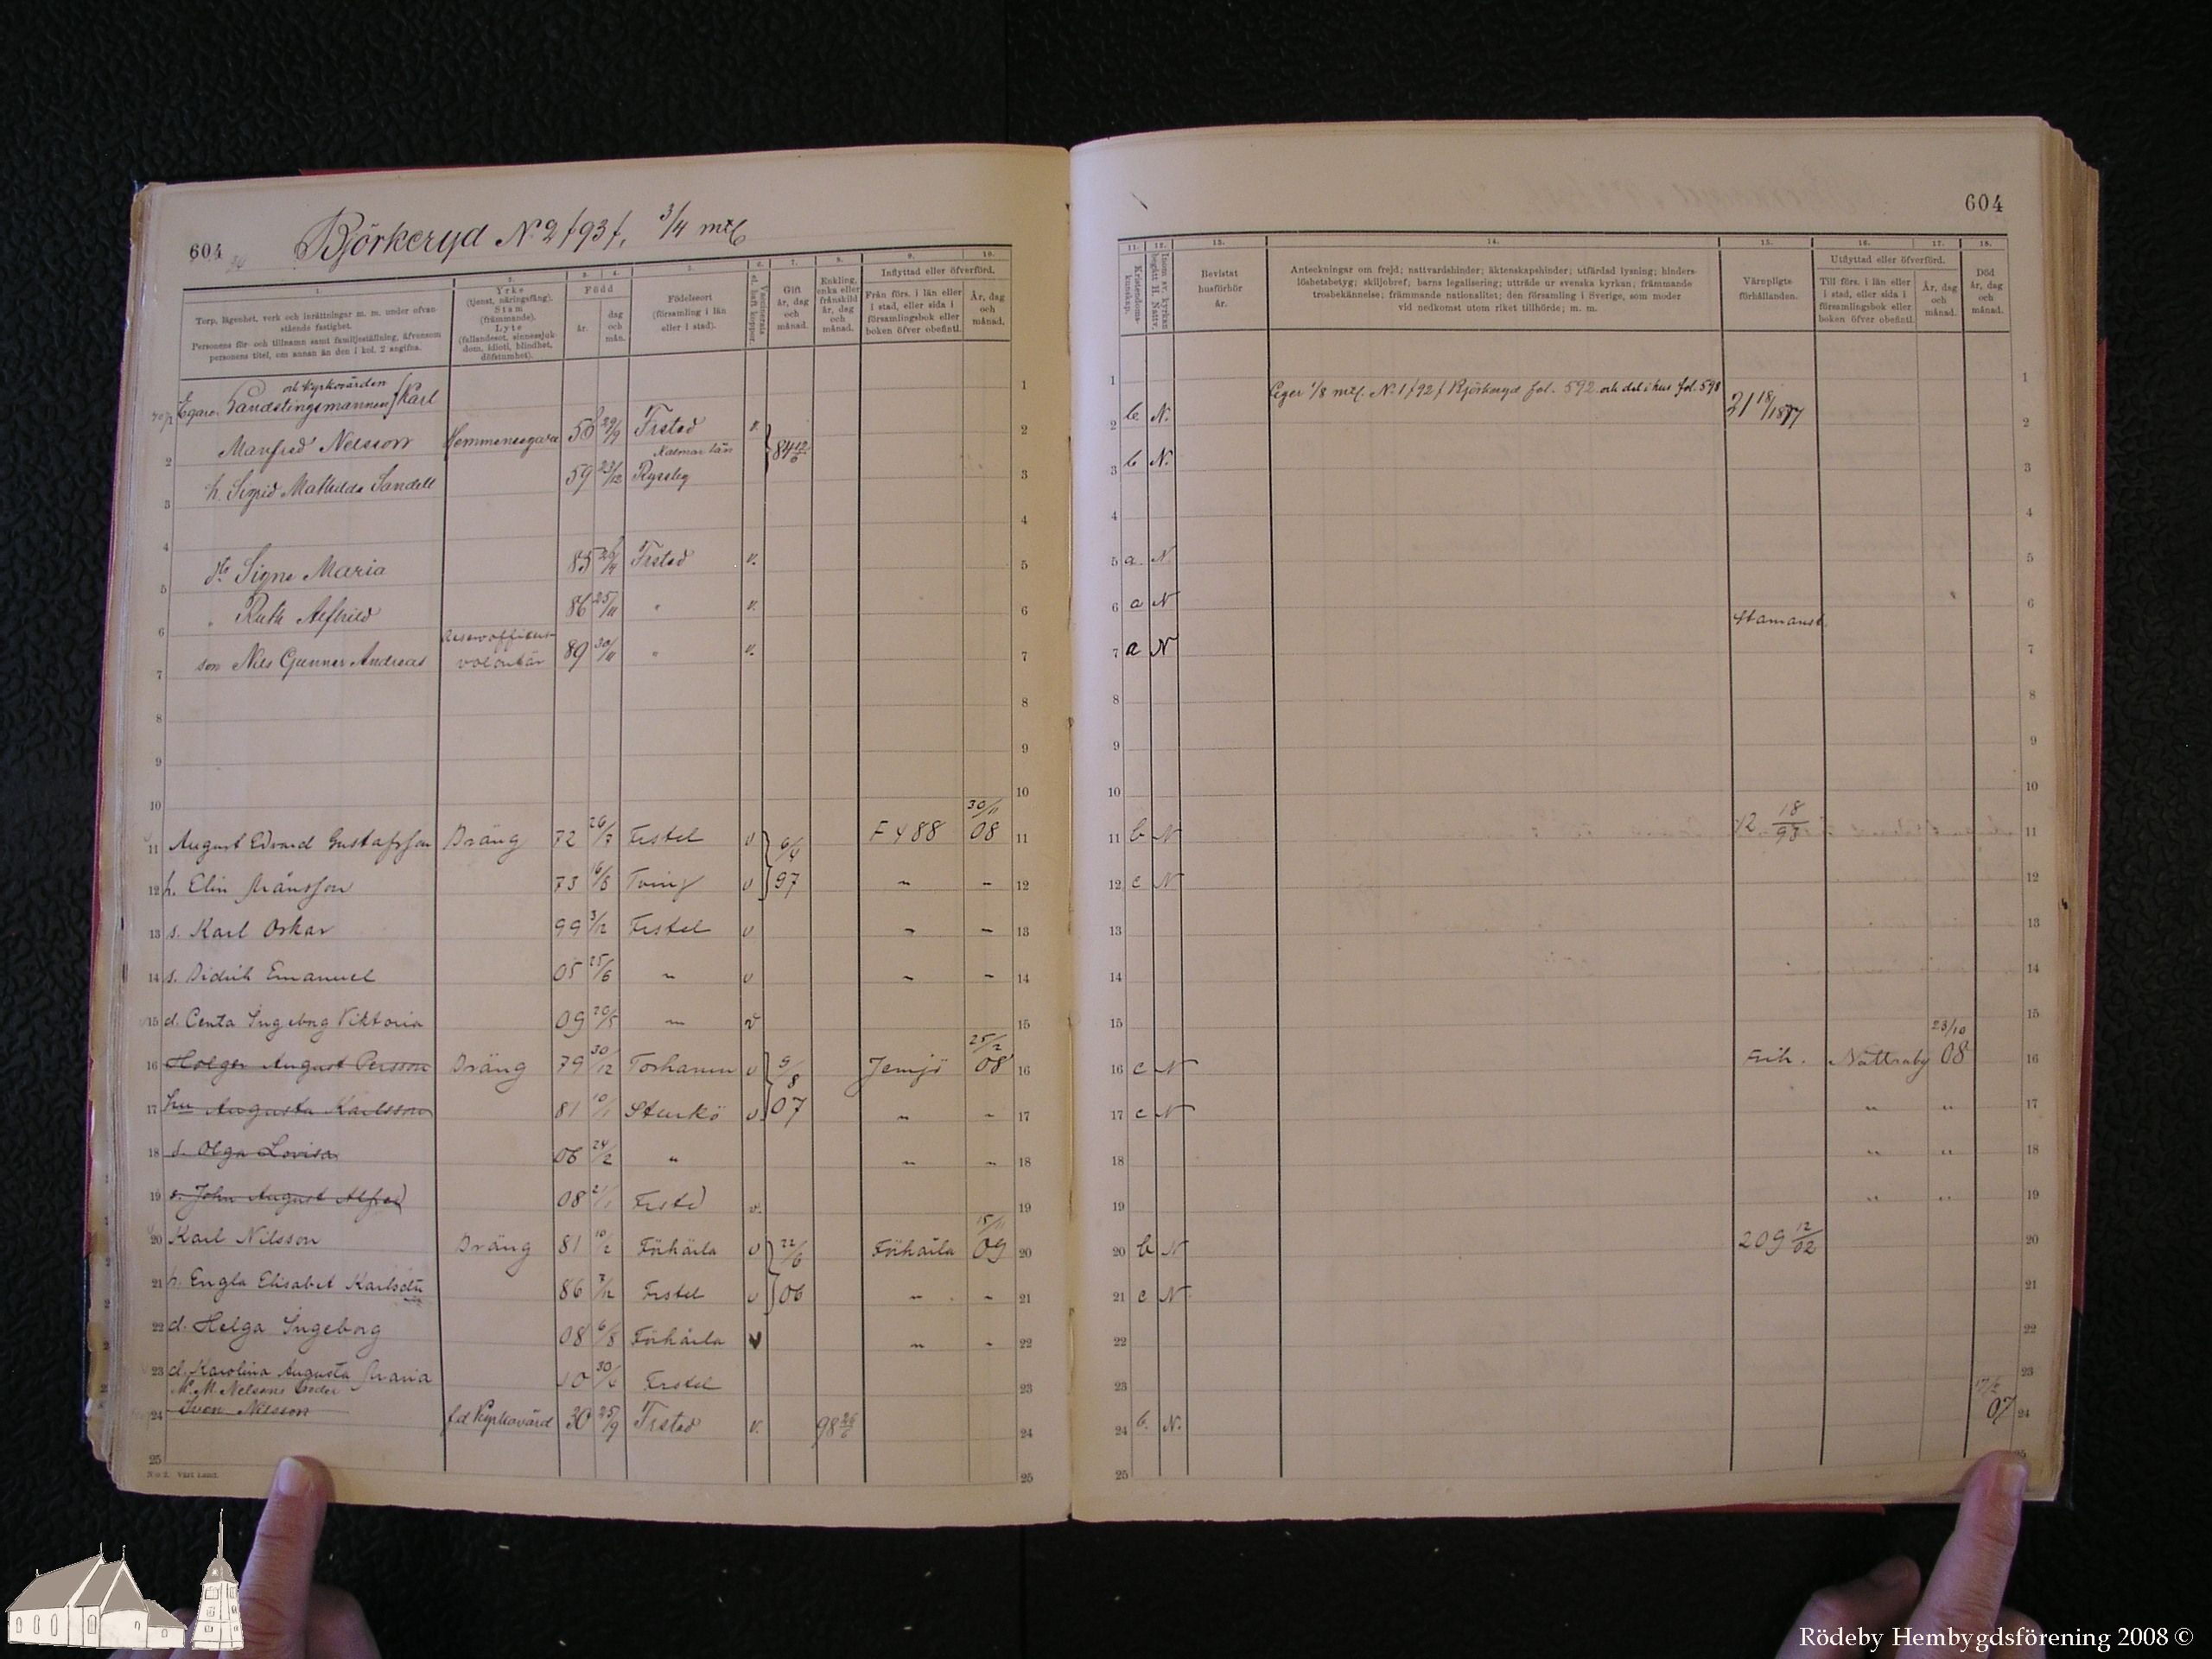 604
Björkeryd No 2 /93/, 3/4 mtl
1.
Torp, lägenhet, verk och inrättningar m. m. under ofvanstående fastighet.
Personens för- och tillnamn samt familjeställning, äfvensom personens titel, om annan än den i kol. 2 angifna.
2.
Yrke
(tjenst, näringsfång).
Stam
(främmande).
Lyte
(fallandesot, sinnessjukdom, idioti, blindhet, döfstumhet).
3. 4.
Född
år.
dag och mån.
5.
Födelseort
(församling i län eller i stad).
6.
Vaccinerats el. haft koppor.
7.
Gift
år, dag och månad.
8.
Enkling, enka eller frånskild
år, dag och månad.
9. 10.
Inflyttad eller öfverförd.
Från förs. i län eller i stad, eller sida i församlingsbok eller boken öfver obefintl.
År, dag och månad.
Egare: Landstingsmannen och Kyrkovärden Karl
2 Manfred Nelsson Hemmansegare 58 29/9 Frstad v.
3 h. Sigrid Mathilda Sandell 59 23/12 Kalmar län Ryssby 84 12/6
5 dr Signe Maria 85 26/4 Frstad v.
6 " Ruth Alfhild 86 25/11 " v.
7 son Nils Gunnar Andreas Reservofficers volontär 89 30/11 " v.
11 August Edvard Gustafsson Dräng 72 26/7 Frstel v 6/4 F 488 30/11 08
12 h. Elin Månsson 73 16/8 Tving v 97 " "
13 s. Karl Oskar 99 3/12 Frstel v " "
14 s. Didrik Emanuel 05 25/6 " v " "
15 d. Centa Ingeborg Viktoria 09 20/5 " v
16 Holger August Persson Dräng 79 30/12 Torhamn v 9/8 Jemjö 25/2 08
17 hu Augusta Karlsson 81 10/1 Sturkö v 07 " "
18 d. Olga Lovisa 06 24/2 " " "
19 s. John August Alfred 08 21/1 Frstd v.
20 Karl Nilsson Dräng 81 10/2 Förkärla v 22/6 Förkärla 15/11 09
21 h. Engla Elisabet Karlsdtr 86 7/12 Frstel v 06 " "
22 d. Helga Ingeborg 08 6/8 Förkärla v " "
23 d. Karolina Augusta Maria 10 30/6 Frstel
M. Nelsons fader
24 Sven Nilsson f.d Kyrkovärd 30 25/9 Frstad v. 98 26/6
25
N:o 2. Vårt Land.
604
11.
Kristendomskunskap.
12.
Inom sv. kyrkan begått H. Nattv.
13.
Bevistat husförhör
år.
14.
Anteckningar om frejd; nattvardshinder; äktenskapshinder; utfärdad lysning; hinderslöshetsbetyg; skiljobref; barns legalisering; utträde ur svenska kyrkan; främmande trosbekännelse; främmande nationalitet; den församling i Sverige, som moder vid nedkomst utom riket tillhörde; m. m.
15.
Värnpligtsförhållanden.
16. 17.
Utflyttad eller öfverförd.
Till förs. i län eller i stad, eller sida i församlingsbok eller boken öfver obefintl.
År, dag och månad.
18.
Död
år, dag och månad.
1 Eger 1/8 mtl. No 1 /92/ Björkeryd fol. 592 och del i hus fol. 598
2 b N. 21 18/1877
3 b N.
4
5 a N
6 a N
7 a N Stamanst.
8
9
10
11 b N 12 18/93
12 c N
13
14
15
16 c N Frik. Nättraby 23/10 08
17 c N " "
18 " "
19 " "
20 b N 209 12/02
21 c N
22
23
24 b. N. 17/2 07
25
Rödeby Hembygdsförening 2008 ©